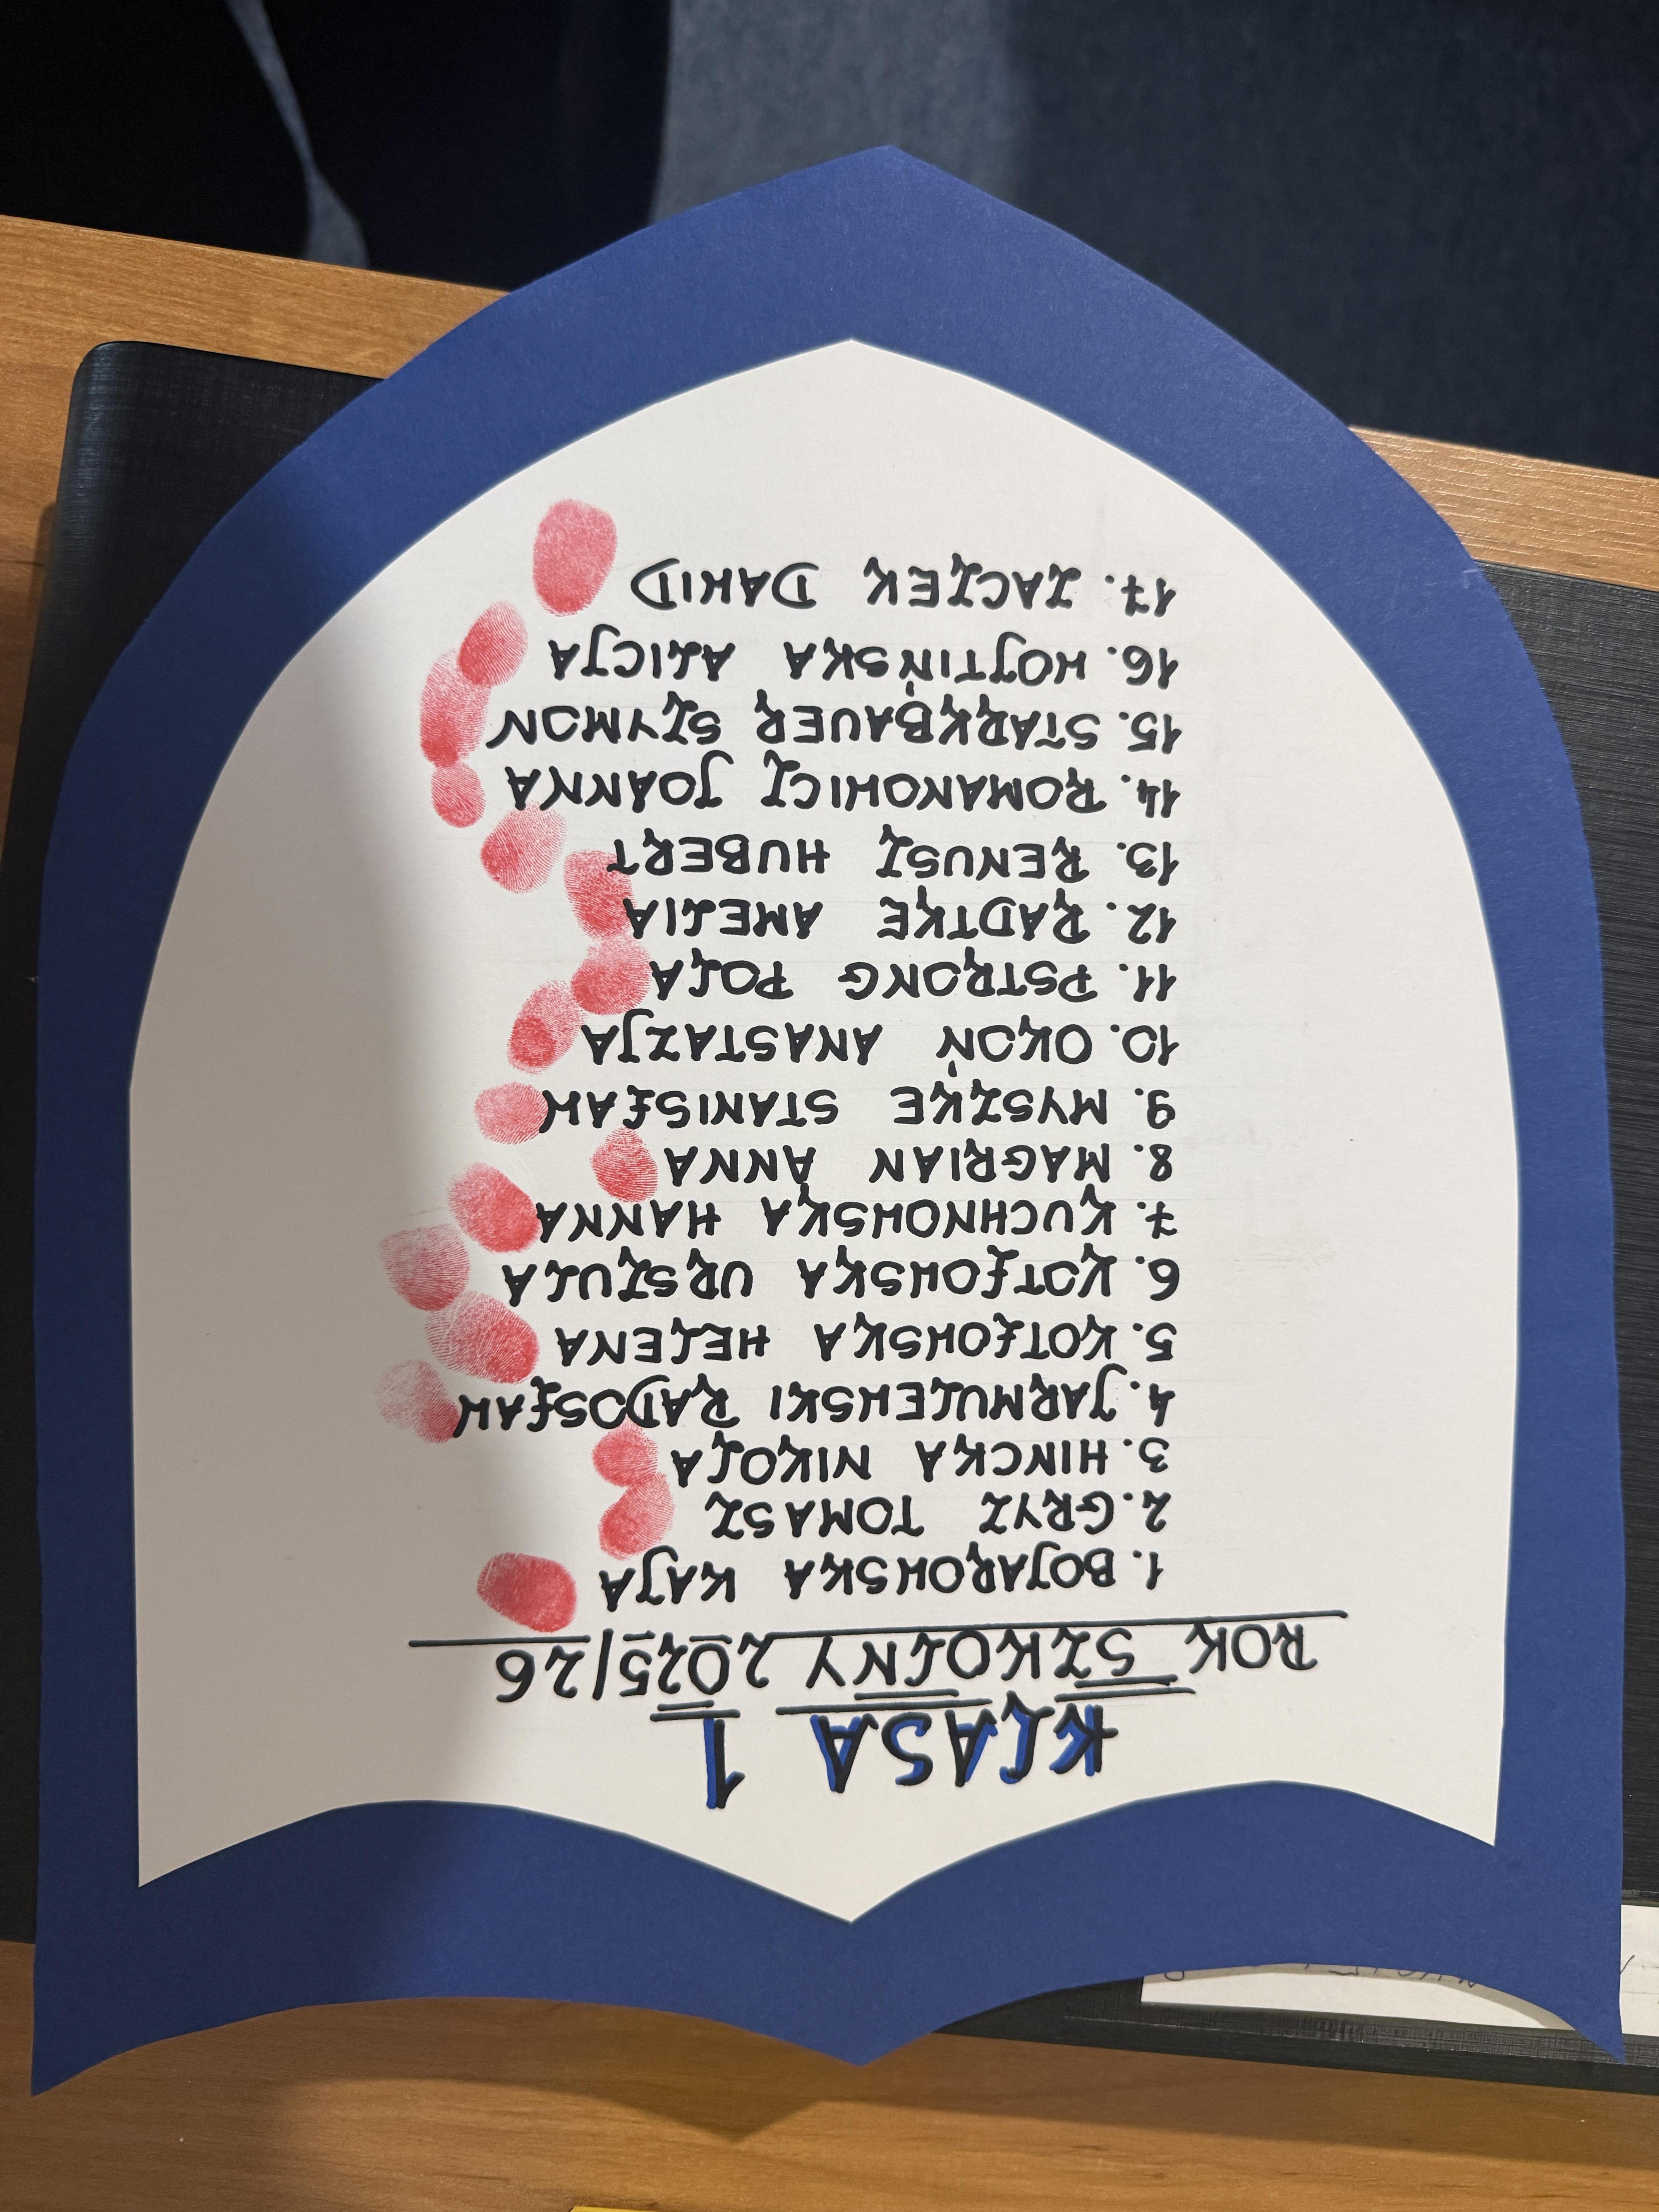 KLASA 1
ROK SZKOLNY 2025/26
1. BOJAROWSKA KAJA
2. GRYZ TOMASZ
3. HINCKA NIKOLA
4. JARMULEWSKI RADOSŁAW
5. KOTŁOWSKA HELENA
6. KOTŁOWSKA URSZULA
7. KUCHNOWSKA HANNA
8. MAGRIAN ANNA
9. MYSZKE STANISŁAW
10. OKOŃ ANASTAZJA
11. PSTRONG POLA
12. RADTKE AMELIA
13. RENUSZ HUBERT
14. ROMANOWICZ JOANNA
15. STARKBAUER SZYMON
16. WOJTIŃSKA ALICJA
17. ZACZEK DAWID